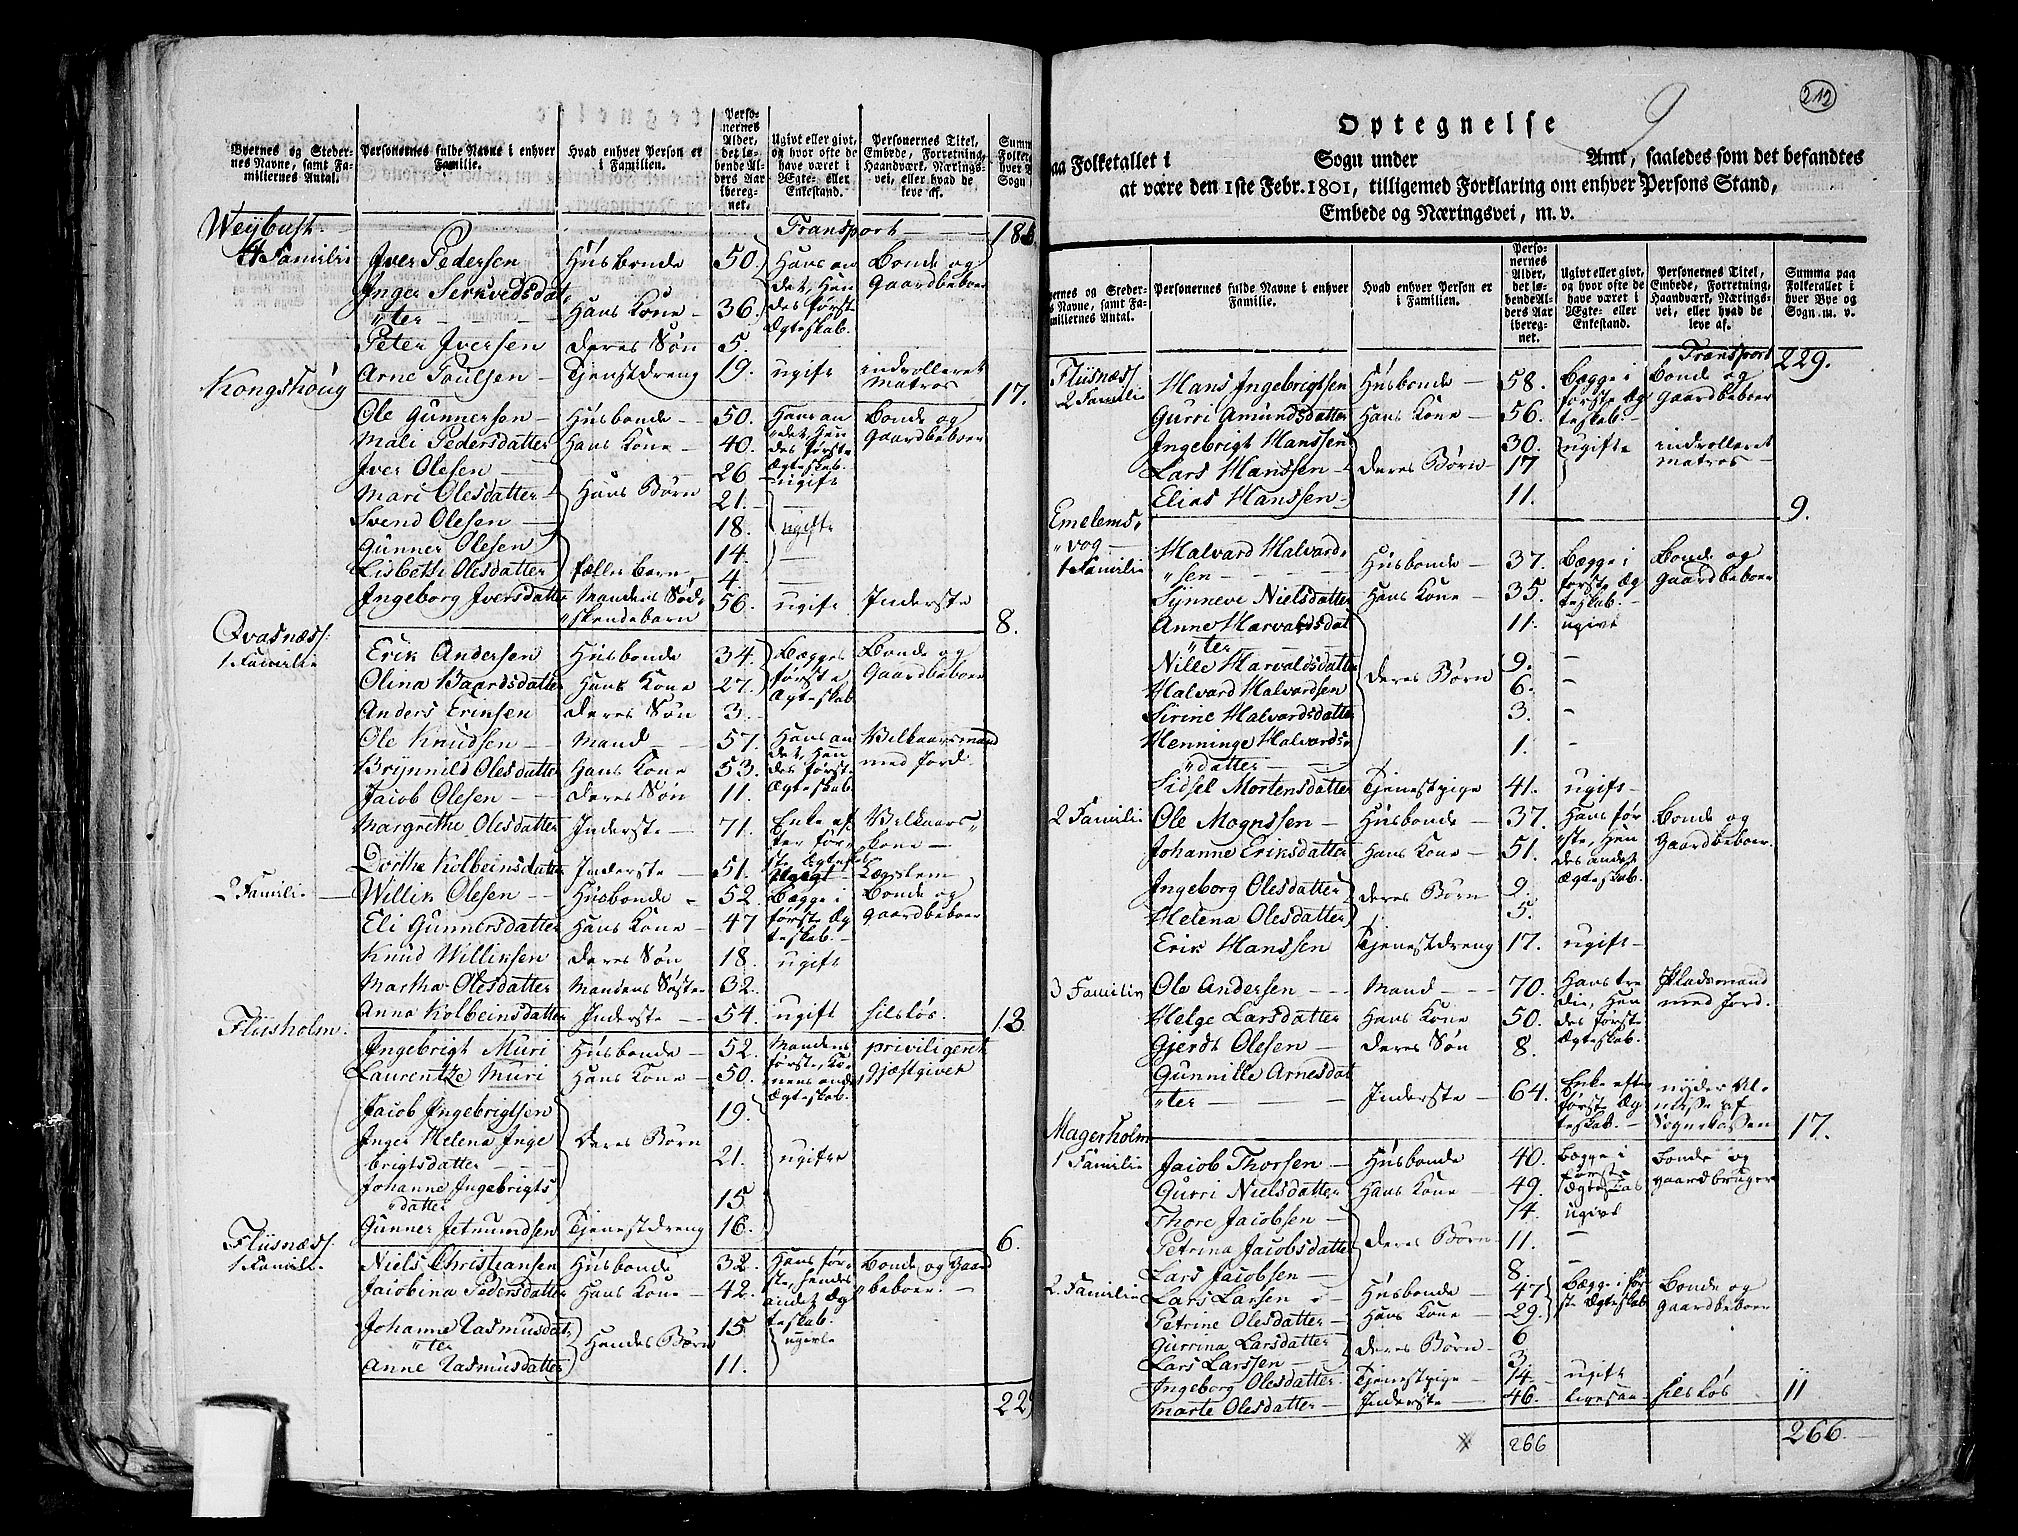 Byernes og Stedernes Navne, samt Familiernes Antal.
Personernes fulde Navne i enhver Familie.
Hvad enhver Person er i Familien.
Personernes Alder, det løbende Alders Aar iberegnet.
Ugivt eller givt, og hvor ofte de have været i Ægte- eller Enkestand.
Personernes Titel, Embede, Forretning, Haandværk, Næringsvei, eller hvad de leve af.
Transport 186
Weÿbust
4 Familie Iver Pedersen Husbonde 50 Hans andet, Hendes første Ægteskab. Bonde og Gaardbeboer
Inger Serkvedsdatter Hans Kone 36
Peter Iversen Deres Søn 5.
Arne Poulsen Tjenestdreng 19. ugift indrolleret Matros 17.
Kongshoug
Ole Gunnersen Husbonde 50. Hans andet, Hendes første Ægteskab. Bonde og Gaardbeboer
Mali Pedersdatter Hans Kone 40.
Iver Olesen Hans Børn 26 ugift
Mari Olesdatter 21.
Svend Olesen 18. ugifte
Gunner Olesen 14.
Lisbeth Olesdatter fælles barn 4.
Ingeborg Iversdatter Mandens Sødskendebarn 56. ugift Inderste 8.
Qvasness:
1 Familie Erik Andersen Husbonde 34. Begges første Ægteskab Bonde og Gaardbeboer
Olina Baardsdatter Hans Kone 27.
Anders Eriksen Deres Søn 3.
Ole Knudsen Mand 57. Hans andet, Hendes første Ægteskab Vilkaarsmand med Jord.
Brynnild Olesdatter Hans Kone 53.
Jacob Olesen Deres Søn 11.
Margrethe Olesdatter Inderste 71. Enke efter første Ægteskab Vilkaarskone
Dorthe Kolbeinsdatter Inderste 51. Ugivt Lægslem
2 Familie Willik Olesen Husbonde 52. Begge i første Ægteskab. Bonde og Gaardbeboer
Eli Gunnersdatter Hans Kone 47
Knud Williksen Deres Søn 18. ugift
Martha Olesdatter Mandens Søster 32.
Anna Kolbeinsdatter Inderste 54. ugift filsløs. 13
Fliisholm.
Ingebrigt Muri Husbonde 52. Mandens første, Konens andet Ægteskab. priviligeret Gjæstgiver
Laurentze Muri Hans Kone 50.
Jacob Ingebrigtsen Deres Børn 19. ugifte
Inger Helena Ingebrigtsdatter 21.
Johanne Ingebrigtsdatter 15
Gunner Jetmundsen Tjenestdreng 16. 6.
Fliisness:
1 Familie Niels Christiansen Husbonde 32. Hans første, hendes andet Ægteskab. Bonde og Gaardbeboer.
Jacobina Pedersdatter Hans Kone 42.
Johanne Rasmusdatter Hendes Børn 15 ugivte
Anne Rasmusdatter 11.
229
212
9
Optegnelse
paa Folketallet i Sogn under Amt, saaledes som det befandtes
at være den 1ste Febr. 1801, tilligemed Forklaring om enhver Persons Stand,
Embede og Næringsvei, m. v.
Byernes og Stedernes Navne, samt Familiernes Antal.
Personernes fulde Navne i enhver Familie.
Hvad enhver Person er i Familien.
Personernes Alder, det løbende Alders Aar iberegnet.
Ugivt eller givt, og hvor ofte de have været i Ægte- eller Enkestand.
Personernes Titel, Embede, Forretning, Haandværk, Næringsvei, eller hvad de leve af.
Summa paa Folketallet i hver Bye og Sogn. m. v.
Transport 229.
Fliisness
2 Familie Hans Ingebrigtsen Husbonde 58. Begge i første Ægteskab. Bonde og Gaardbeboer
Gurri Amundsdatter Hans Kone 56.
Ingebrigt Hanssen Deres Børn 30. ugifte indrolleret Matros
Lars Hanssen 17
Elias Hanssen 11. 9.
Emelemsvog
1 Familie Halvard Halvardsen Husbonde 37. Begge i første Ægteskab. Bonde og Gaardbeboer
Synneve Nielsdatter Hans Kone 35.
Anne Harvaldsdatter Deres Børn 11. ugivt
Nille Harvaldsdatter 9.
Halvard Halvardsen 6.
Sirine Halvardsdatter 3.
Henninge Halvardsdatter 1.
Sidsel Mortensdatter Tjenestpige 41. ugift
2 Familie Ole Mognssen Husbonde 37. Hans første, Hendes andet Ægteskab. Bonde og Gaardbeboer.
Johanne Eriksdatter Hans Kone 51.
Ingeborg Olesdatter Deres Børn 9.
Helena Olesdatter 5.
Erik Hanssen Tjenestdreng 17. ugift
3 Familie Ole Andersen Mand 70. Hans tredie, Hendes første Ægteskab. Pladsmand med Jord.
Helge Larsdatter Hans Kone 50.
Gjerdt Olesen Deres Søn 8.
Gunnille Arnesdatter Inderste 64. Enke efter første Ægteskab. nyder Almisse af Sognekassen 17.
Magerholm
1 Familie Jacob Thorsen Husbonde 40. Begge i første Ægteskab Bonde og gaardbruger
Gurri Nielsdatter Hans Kone 49.
Thore Jacobsen Deres Børn 14. ugivt
Petrina Jacobsdatter 11.
Lars Jacobsen 8.
2. Familie Lars Larsen Husbonde 47 Begge i første Ægteskab Bonde og Gaardbeboer
Petrine Olesdatter Hans Kone 29.
Gurrina Larsdatter Deres Børn 6
Lars Larssen 3.
Ingeborg Olesdatter Tjenestpige 14. ugift
Marte Olesdatter Inderste 46. filsløs 11
266 266.